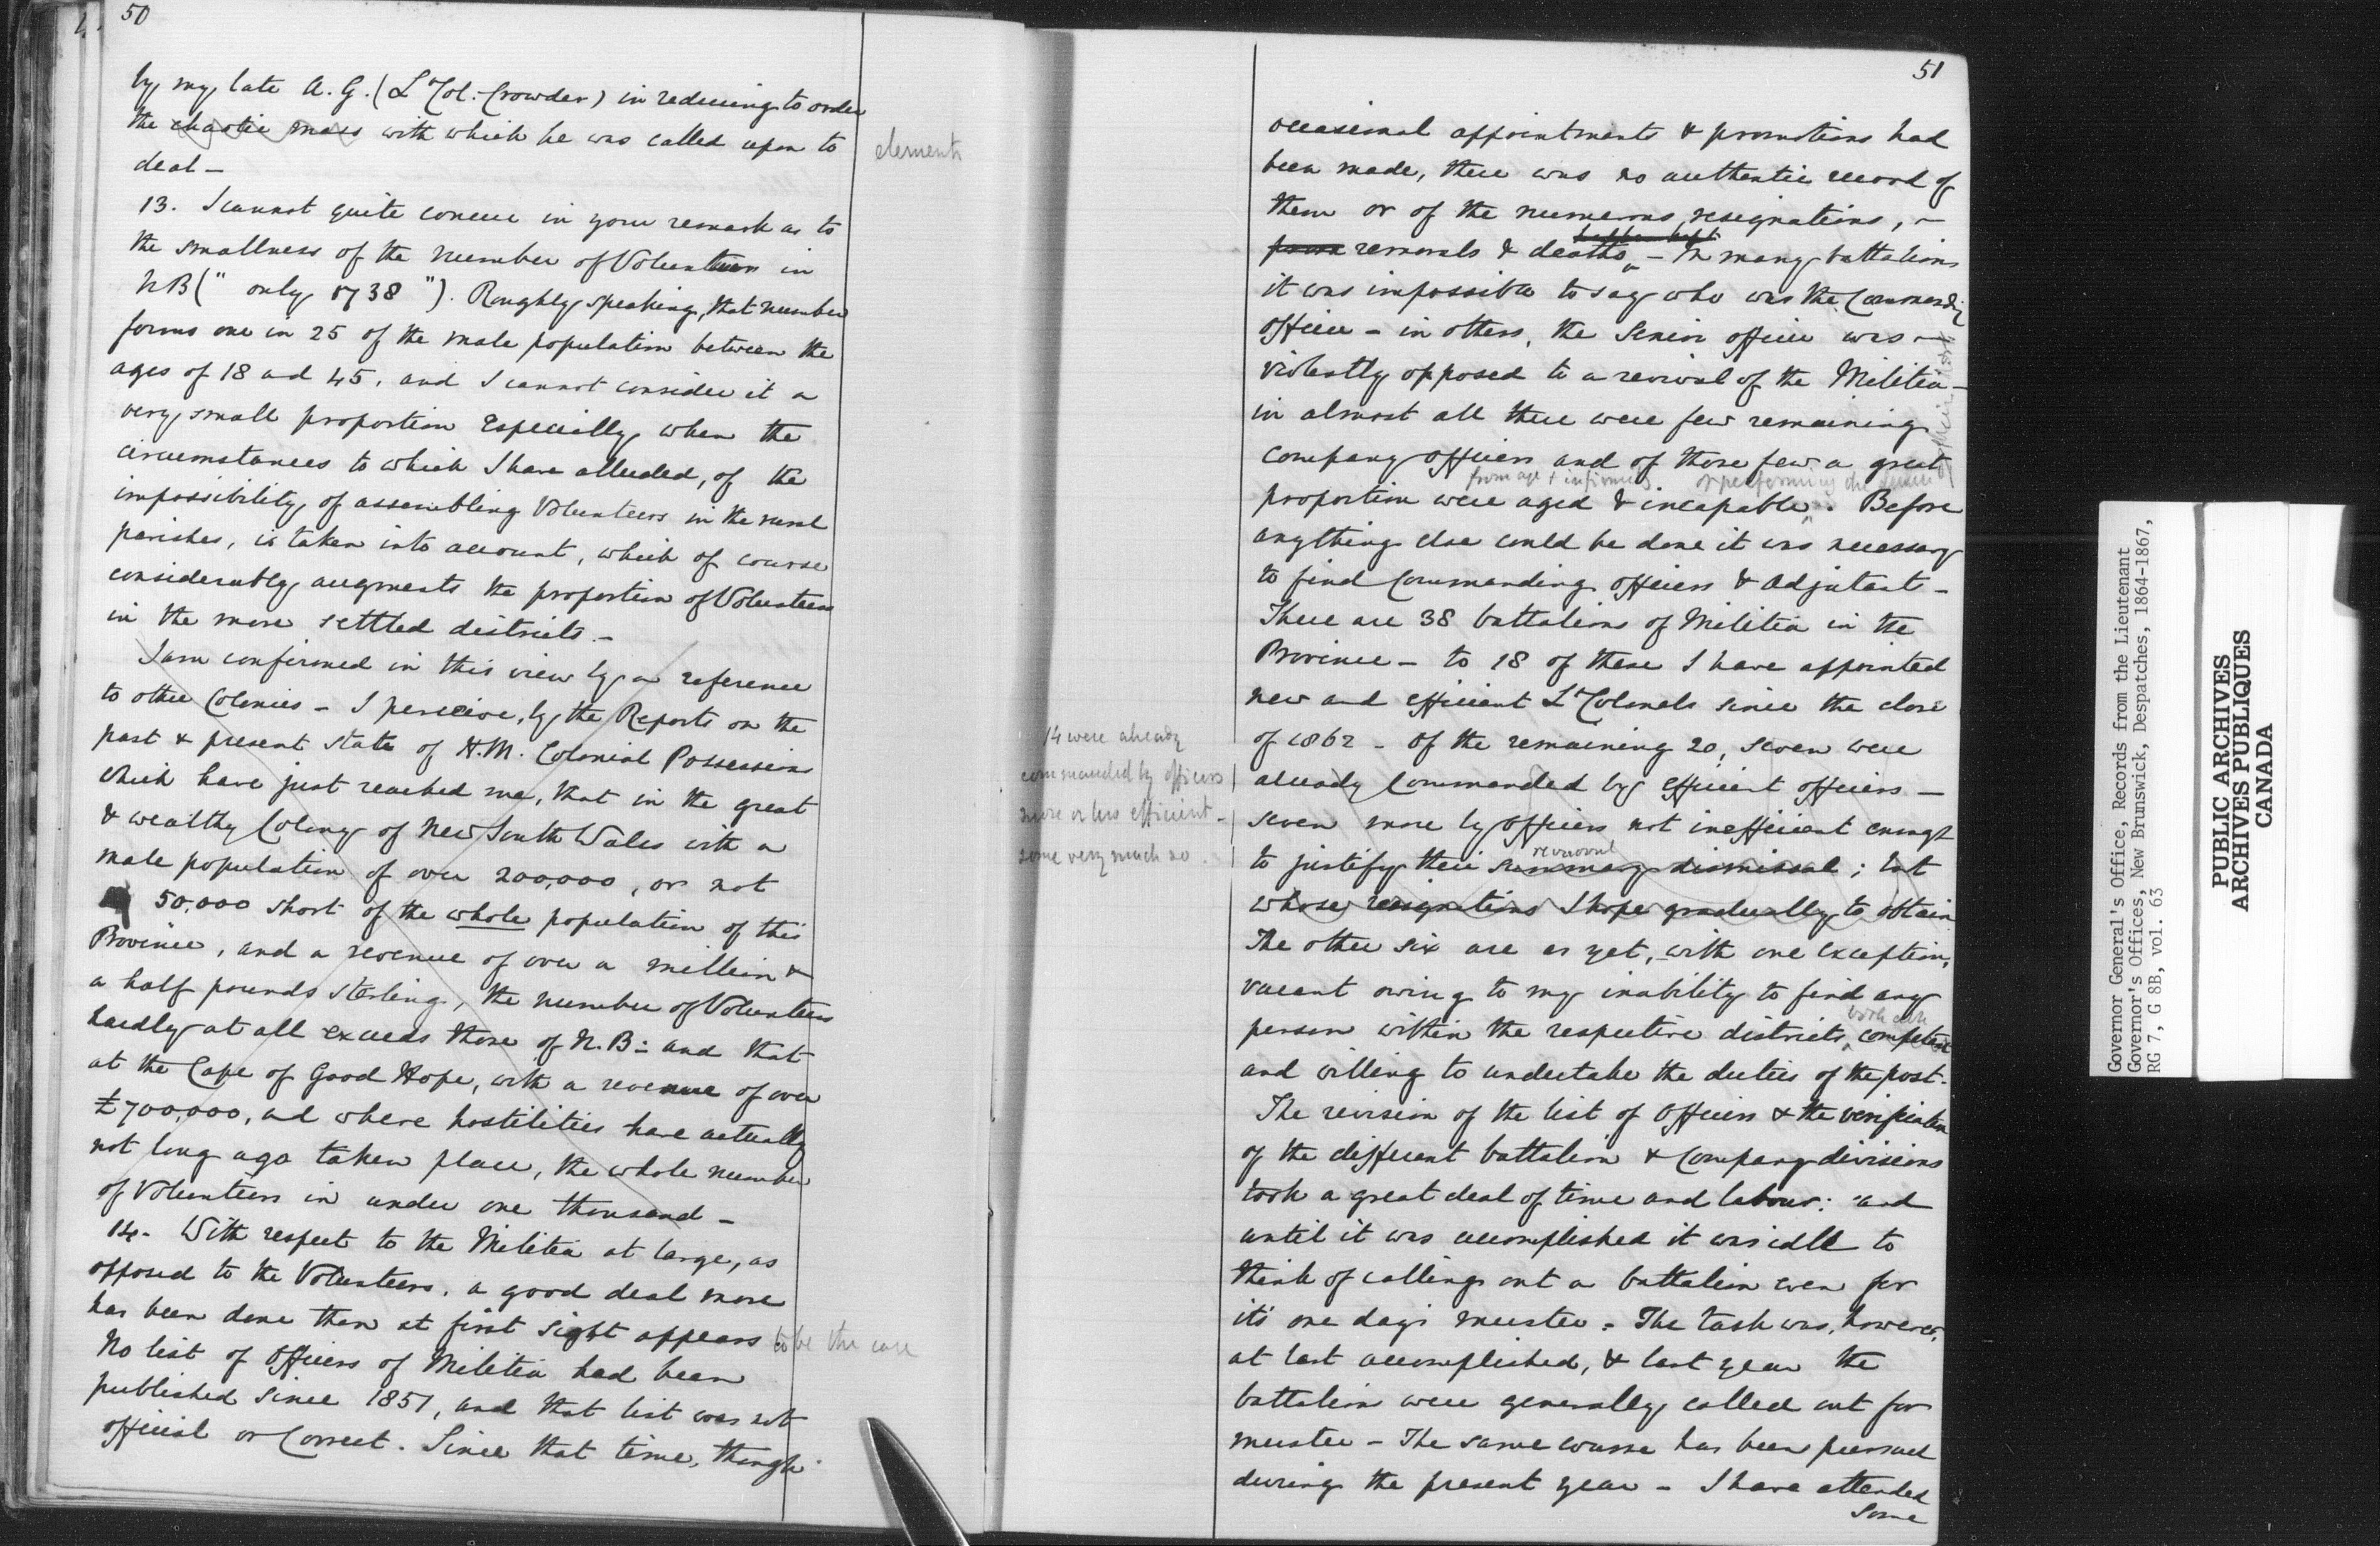 50
by my late A. G. (Lt Col: Crowder) in reducing to order
the chaotic mass with which he was called upon to
elements
deal –
13. I cannot quite concur in your remark as to
the smallness of the number of Volunteers in
NB (" only 1738 "). Roughly speaking, that number
forms one in 25 of the male population between the
ages of 18 and 45, and I cannot consider it a
very small proportion Especially when the
circumstances to which I have alluded, of the
impossibility of assembling Volunteers in the rural
parishes, is taken into account, which of course
considerably augments the proportion of Volunteers
in the more settled districts. –
I am confirmed in this view by a reference
to other Colonies – I perceive, by the Reports on the
past & present state of H.M. Colonial Possessions
which have just reached me, that in the great
& wealthy Colony of New South Wales with a
male population of over 200,000, or not
50,000 short of the whole population of this
Province, and a revenue of over a million &
a half pounds sterling, the number of Volunteers
hardly at all exceeds those of N.B: and that
at the Cape of Good Hope, with a revenue of over
£700,000, and where hostilities have actually
not long ago taken place, the whole number
of Volunteers in under one thousand –
14. With respect to the Militia at large, as
opposed to the Volunteers, a good deal more
has been done than at first sight appears to be the case
No list of Officers of Militia had been
published since 1851, and that list was not
official or Correct. Since that time, though
51
occasional appointments & promotions had
been made, there was no authentic record of
them or of the numerous resignations, –
removals & deaths – In many battalions
it was impossible to say who was the Commandg
Officer – in others, the Senior officer was –
violently opposed to a revival of the Militia –
in almost all there were few remaining
Company officers and of those few a great
from age & infirmity of performing the duties of
proportion were aged & incapable. Before
anything else could be done it was necessary
to find Commanding Officers & Adjutants –
There are 38 battalions of Militia in the
Province – to 18 of these I have appointed
new and efficient Lt Colonels since the close
of 1862 – Of the remaining 20, seven were
already Commanded by efficient officers –
seven more by Officers not inefficient enough
removal
to justify their summary dismissal; but
whose resignations I hope gradually to obtain
14 were already
commanded by officers
more or less efficient –
some very much so.
The other six are as yet, with one exception,
vacant owing to my inability to find any
both
person within the respective districts, competent
and willing to undertake the duties of the post.
The revision of the list of Officers & the verification
of the different battalion & Company divisions
took a great deal of time and labour: and
until it was accomplished it was idle to
think of calling out a battalion even for
it's one day's muster. The task was, however,
at last accomplished, & last year the
battalion were generally called out for
muster – The same course has been pursued
during the present year – I have attended
some
Governor General's Office, Records from the Lieutenant
Governor's Offices, New Brunswick, Despatches, 1864-1867,
RG 7, G 8B, vol. 63
PUBLIC ARCHIVES
ARCHIVES PUBLIQUES
CANADA